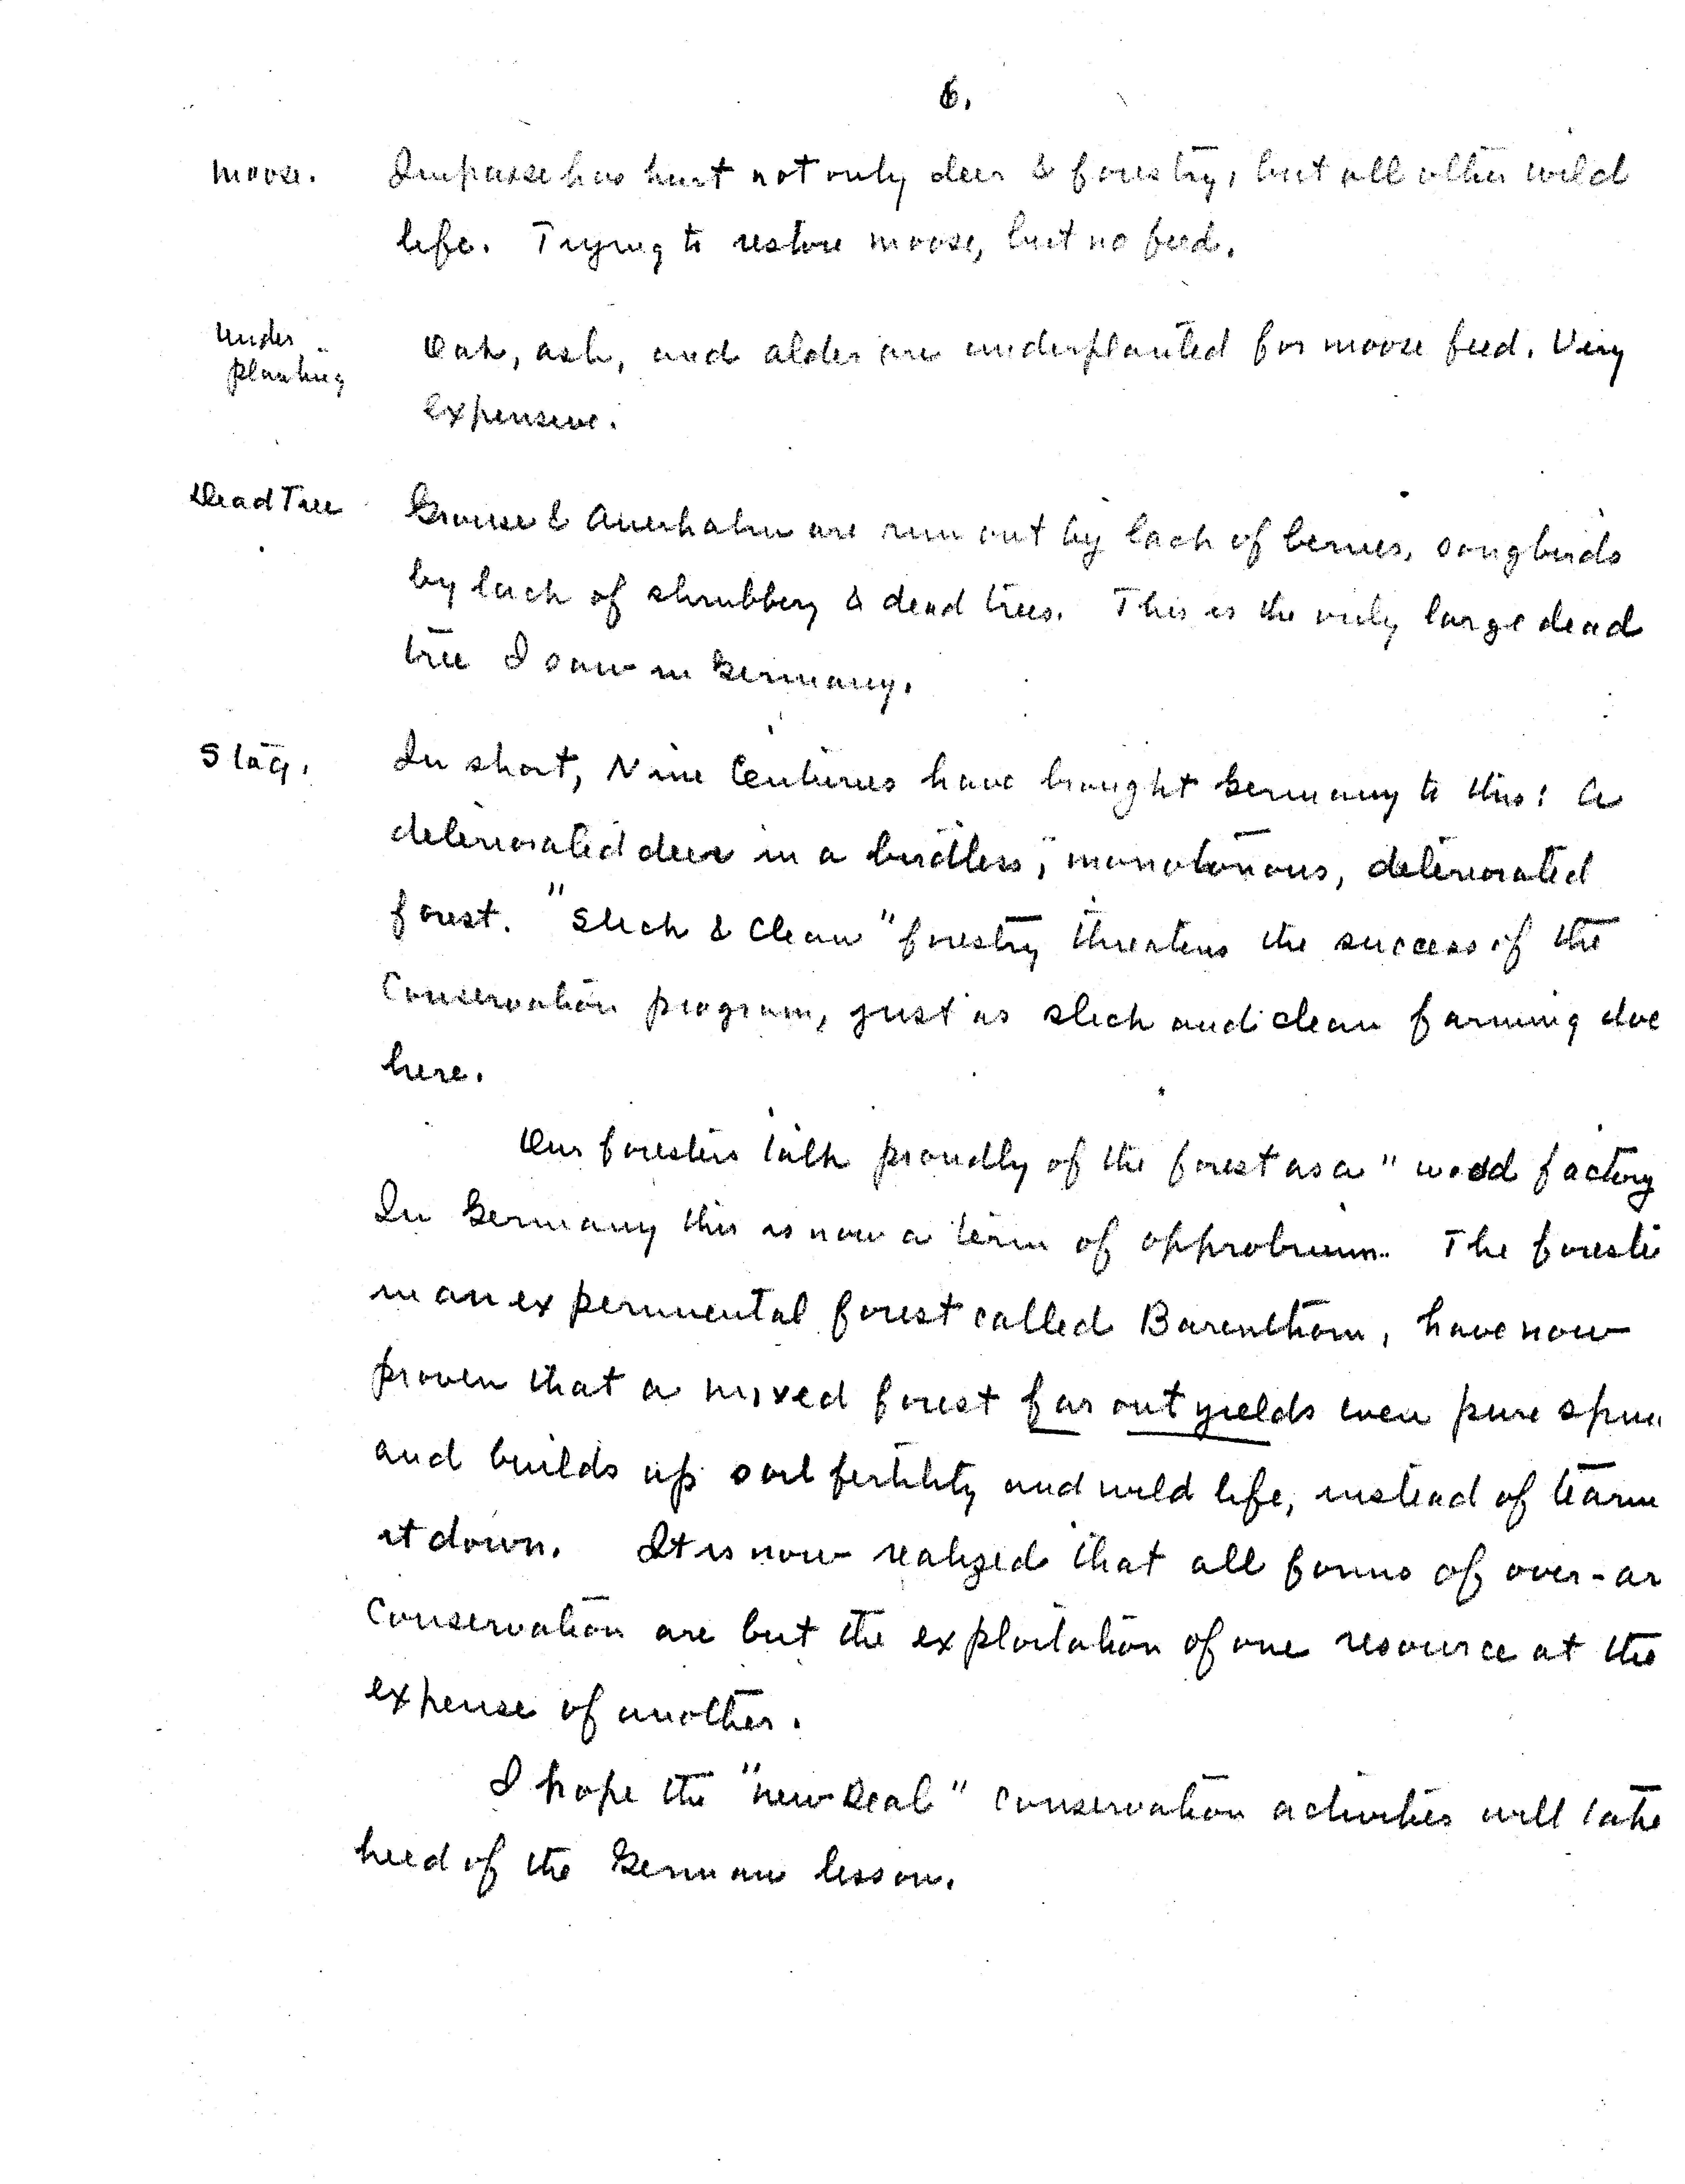 6.
Moose. Impasse has hurt not only deer & forestry, but all other wild
life. Trying to restore moose, but no feed.
Under
planting
Oak, ash, and alder are underplanted for moose feed. Very
expensive.
Dead Tree Grouse & Auerhahn are run out by lack of berries, songbirds
by lack of shrubbery & dead trees. This is the only large dead
tree I saw in Germany.
Stag. In short, Nine Centuries have brought Germany to this: a
deteriorated deer in a birdless, monotonous, deteriorated
forest. "Slick & Clean" forestry threatens the success of the
Conservation program, just as slick and clean farming doe
here.
Our foresters talk proudly of the forest as a "wood factory
In Germany this is now a term of opprobrium. The foreste
in an experimental forest called Barenthorn, have now
proven that a mixed forest far outyields even pure spru
and builds up soil fertility and wild life, instead of tearin
it down. It is now realized that all forms of over-ar
Conservation are but the exploitation of one resource at the
expense of another.
I hope the "new Deal" conservation activities will take
heed of the German lesson.